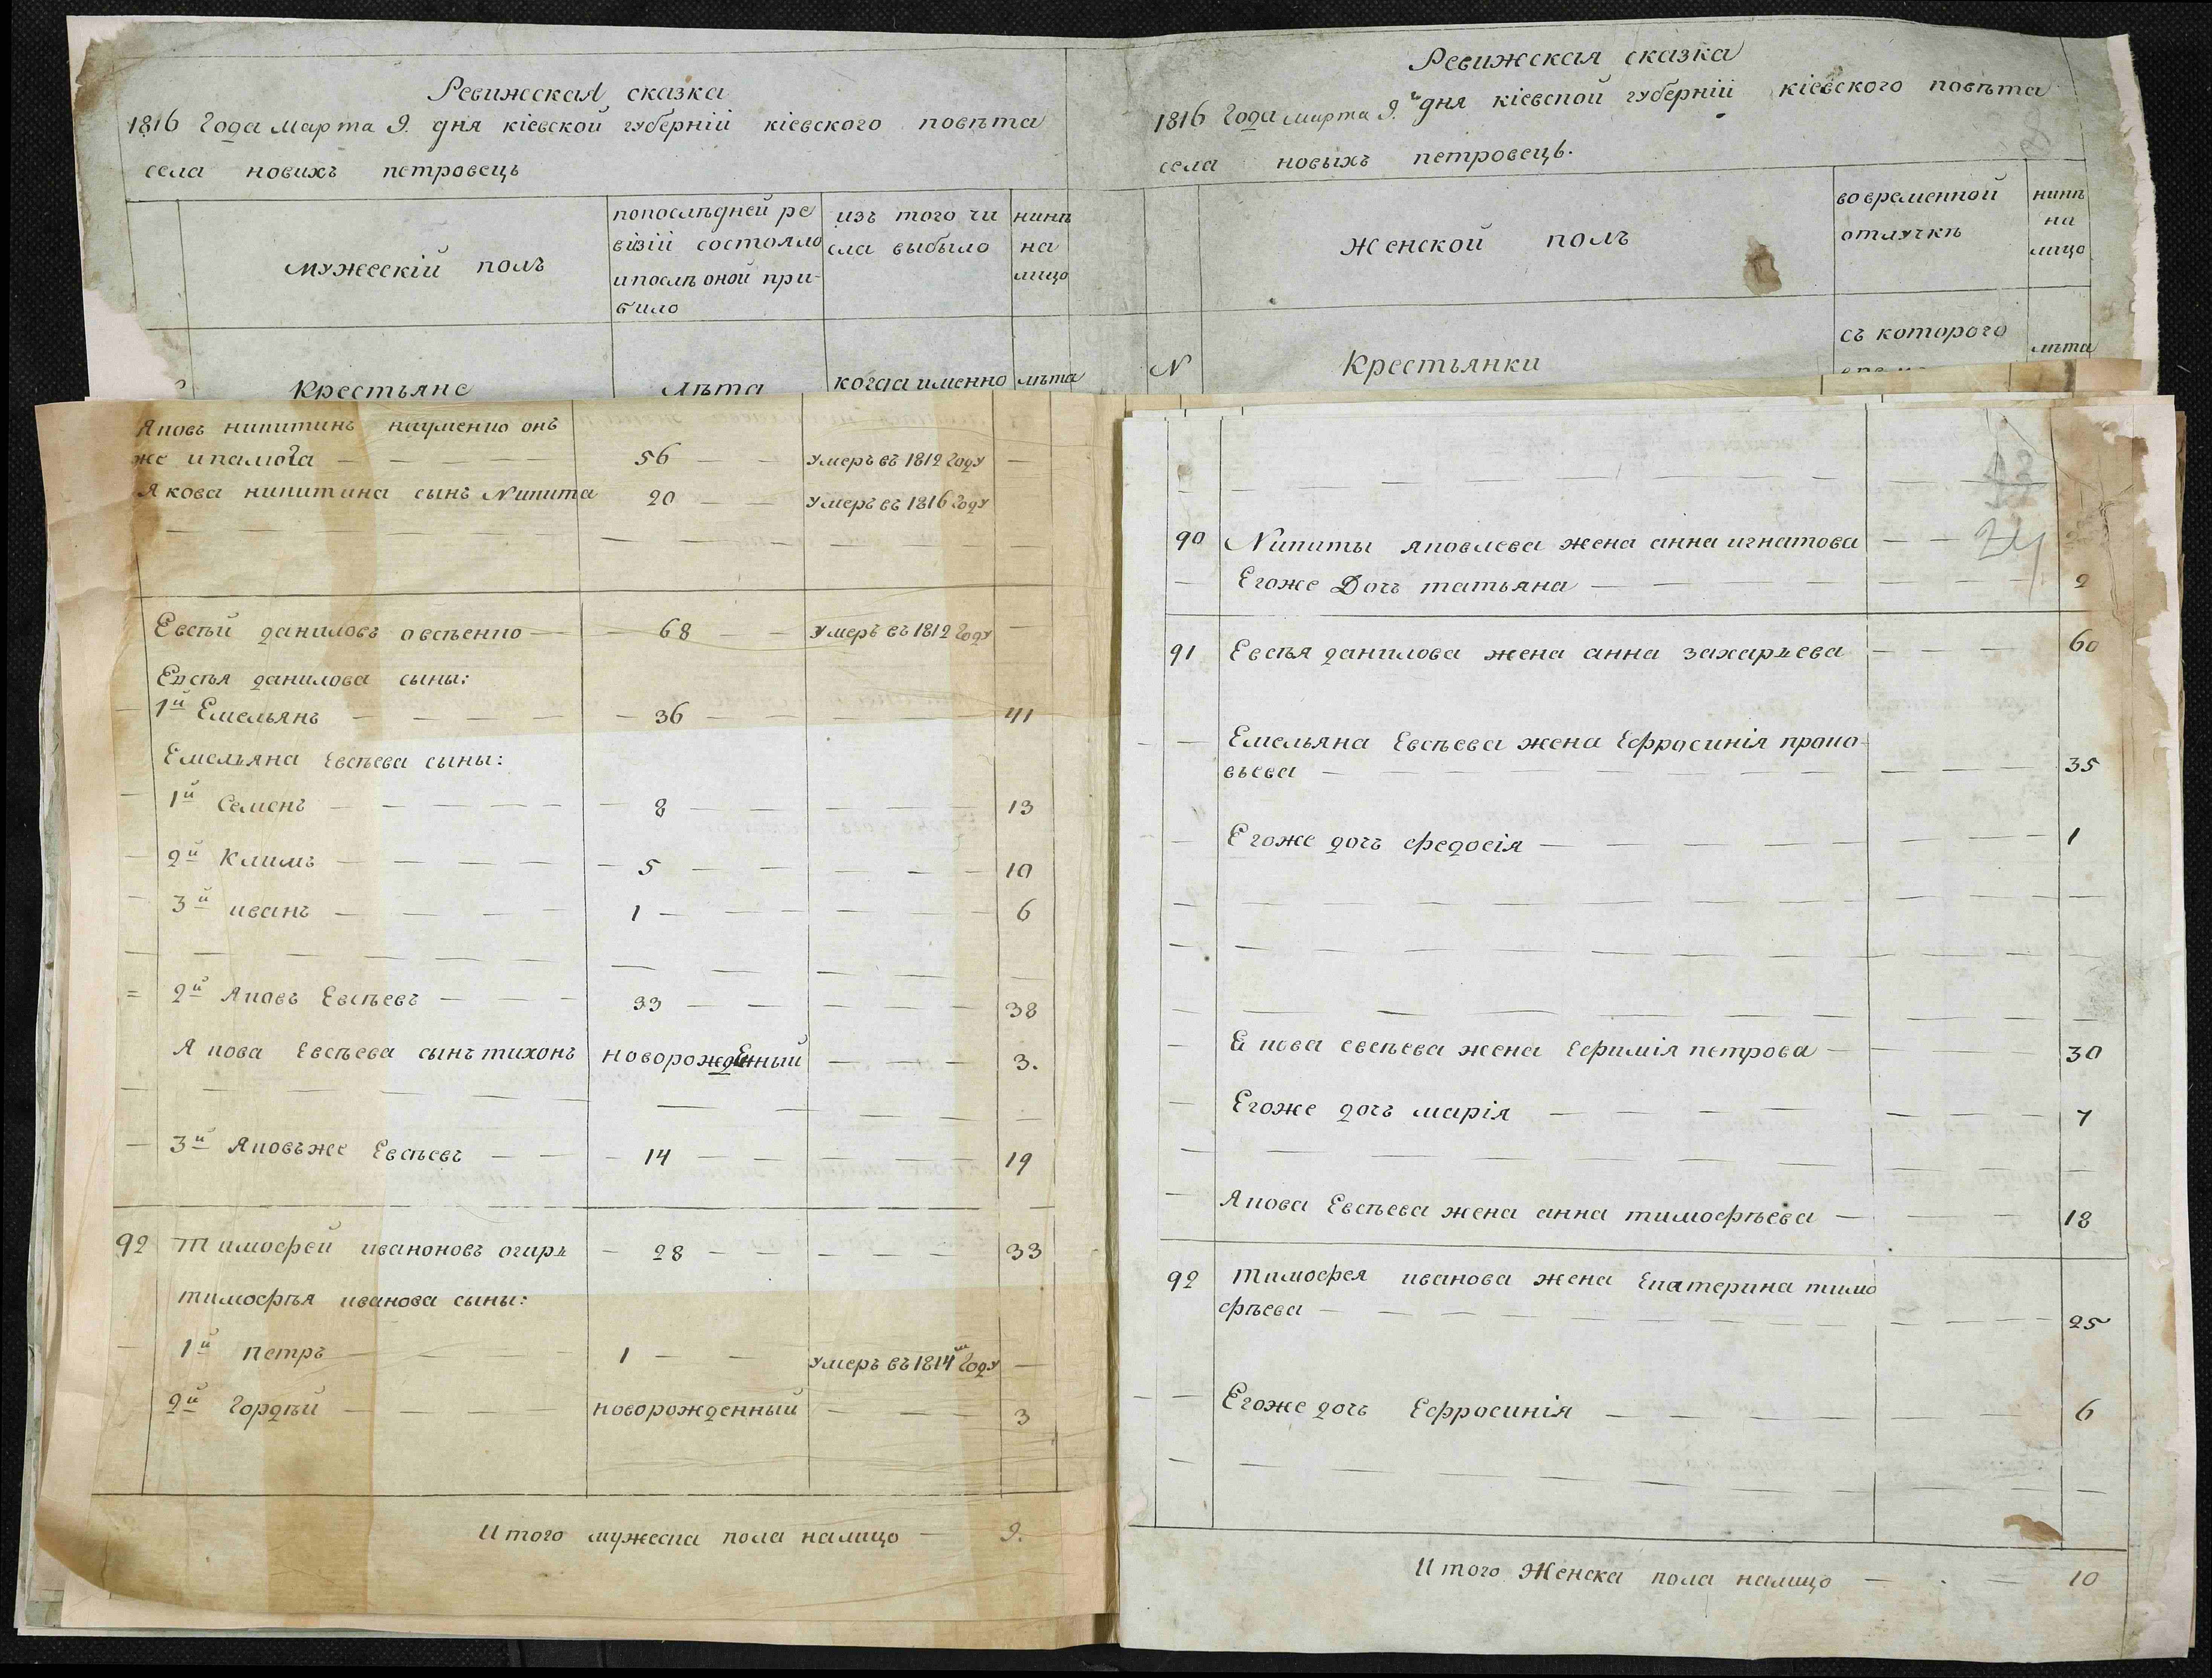 Ревижская сказка
1816 Года марта 9. дня кіевской губерніи кіевского повѣта
села новихъ петровець
мужескій полъ
попослѣдней ре
візіи состояло
ипослѣ оной при-
било
изъ того чи
сла выбыло
нинѣ
на
лицо
Крестьяне
лѣта
когда именно
лѣта
Ревижская сказка
1816 Года марта 9.й дня кіевской губерніи кіевского повѣта
села новыхъ петровець.
женской полъ
вовременной
отлучкѣ
нинѣ
на
лицо
N
Крестьянки
съ которого
лѣта
Яковъ никитинъ науменко онъ
же
56
умеръ въ 1812 Году
Якова никитина сынъ Никита
20
умеръ въ 1816 Году
Евсѣй даниловъ овсѣенко
68
умеръ въ 1812 Году
Евсѣя данилова сыны:
1й Емельянъ
36
41
Емельяна Евсѣева сыны:
1й Семенъ
8
13
2й Климъ
5
10
3й иванъ
1
6
2й Яковъ Евсѣевъ
33
38
Якова Евсѣева сынъ тихонъ
новорожденный
3.
3й Яковъже Евсѣевъ
14
19
92 Тимофей иваноновъ огирь
28
33
тимофѣя иванова сыны:
1й петръ
1
умеръ въ 1814м Году
2й Гордѣй
новорожденный
3
Итого мужеска пола налицо
9.
24
90 Никиты яковлева жена анна игнатова
Егоже Дочь татьяна
2
91 Евсѣя данилова жена анна захарьева
60
Емельяна Евсѣева жена Ефросинія проко
вьева
35
Егоже дочь федосія
1
Якова евсѣева жена Ефимія петрова
30
Егоже дочь марія
7
Якова Евсѣева жена анна тимофѣева
18
92 тимофея иванова жена Екатерина тимо
фѣева
25
Егоже дочь Ефросинія
6
Итого Женска пола налицо
10